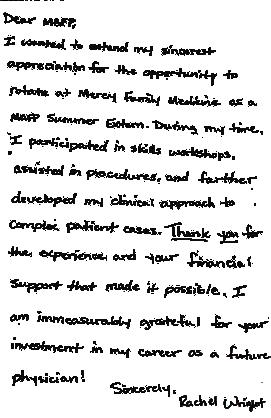 Dear MAFP,
I wanted to extend my sincerest
appreciation for the opportunity to
rotate at Mercy Family Medicine as a
MAFP Summer Extern. During my time,
I participated in skills workshops,
assisted in procedures, and further
developed my clinical approach to
complex patient cases. Thank you for
the experience and your financial
support that made it possible. I
am immeasurably grateful for your
investment in my career as a future
physician!
Sincerely,
Rachel Wright